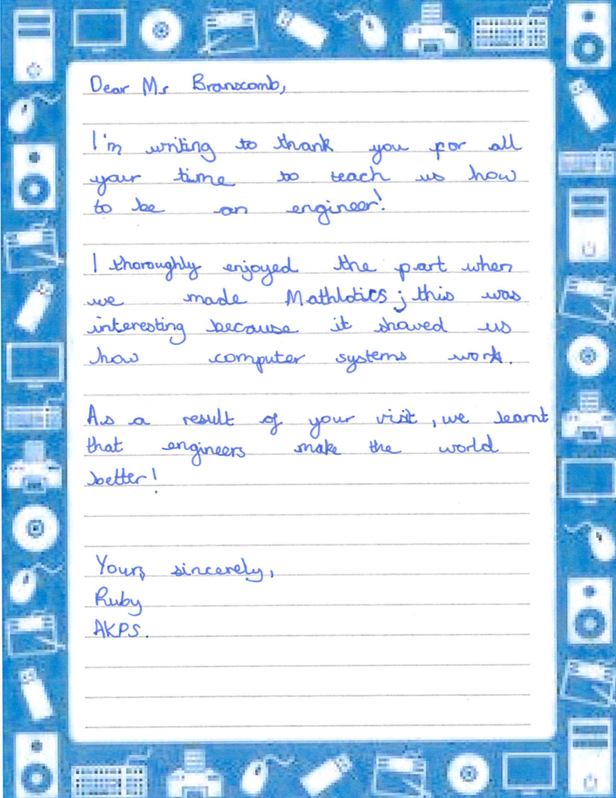 Dear Mr Branscomb,
I'm writing to thank you for all
your time to teach us how
to be an engineer!
I thoroughly enjoyed the part when
we made Mathlotics; this was
interesting because it showed us
how computer systems work.
As a result of your visit, we learnt
that engineers make the world
better!
Yours sincerely,
Ruby
AKPS.